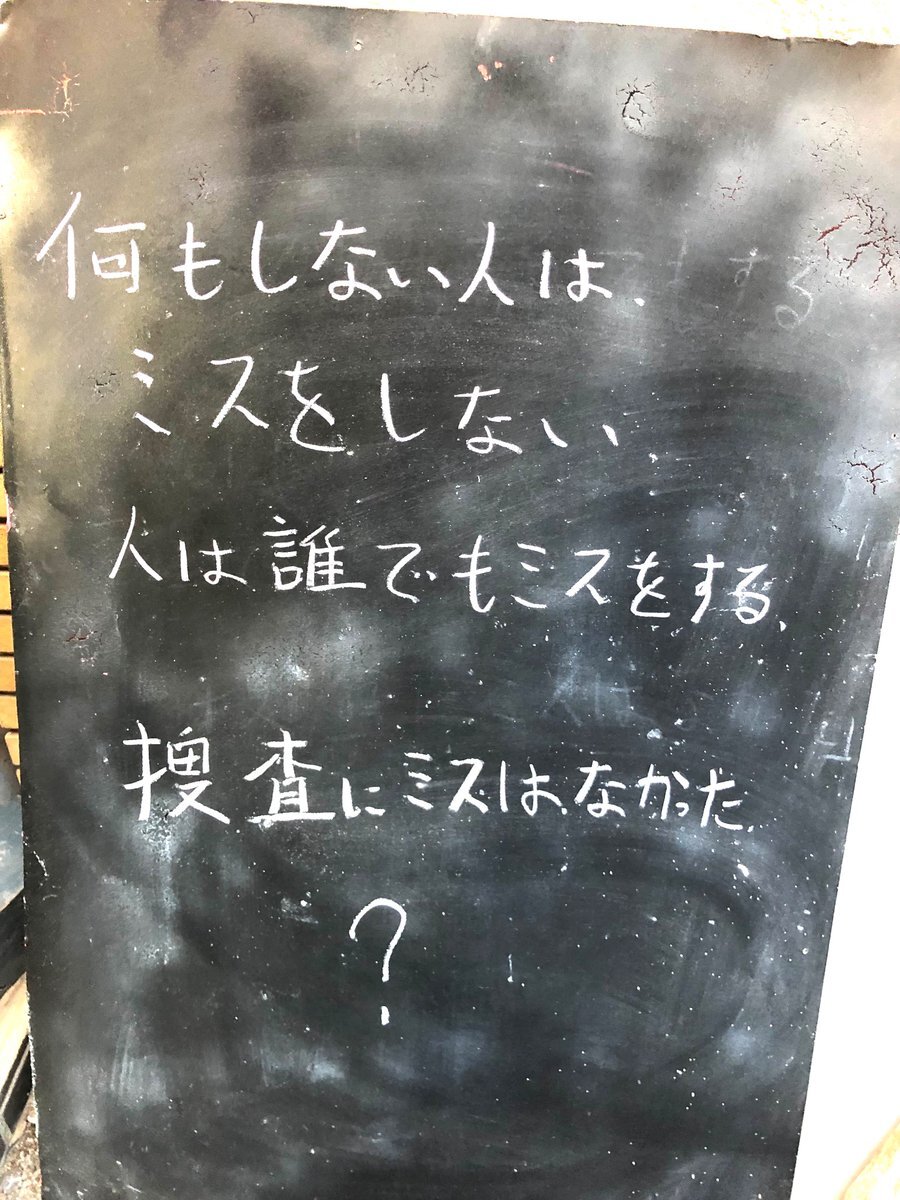 何もしない人は、
ミスをしない
人は誰でもミスをする、
捜査にミスはなかった、
?